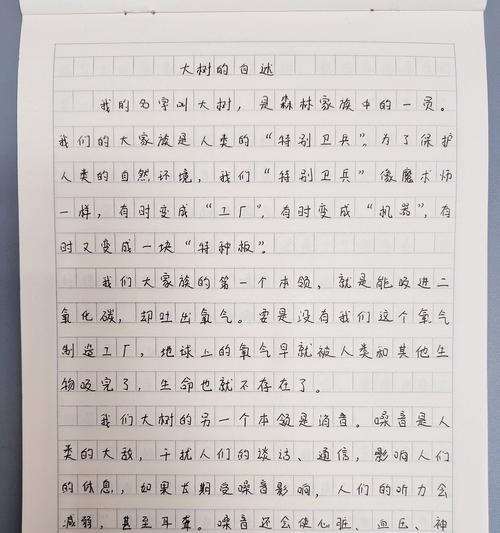 大树的自述
我的名字叫大树，是森林家族中的一员。
我们的大家族是人类的“特别卫兵”。为了保护
人类的自然环境，我们“特别卫兵”像魔术师
一样，有时变成“工厂”，有时变成“机器”，有
时又变成一块“特种板”。
我们大家族的第一个本领，就是能吸进二
氧化碳，却吐出氧气。要是没有我们这个氧气
制造工厂，地球上的氧气早就被人类和其他生
物吸完了，生命也就不存在了。
我们大树的另一个本领是消音。噪音是人
类的大敌，干扰人们的谈话、通信，影响人们
的休息，如果长期受噪音影响，人们的听力会
减弱，甚至耳聋。噪音还会使心脏、血压、神